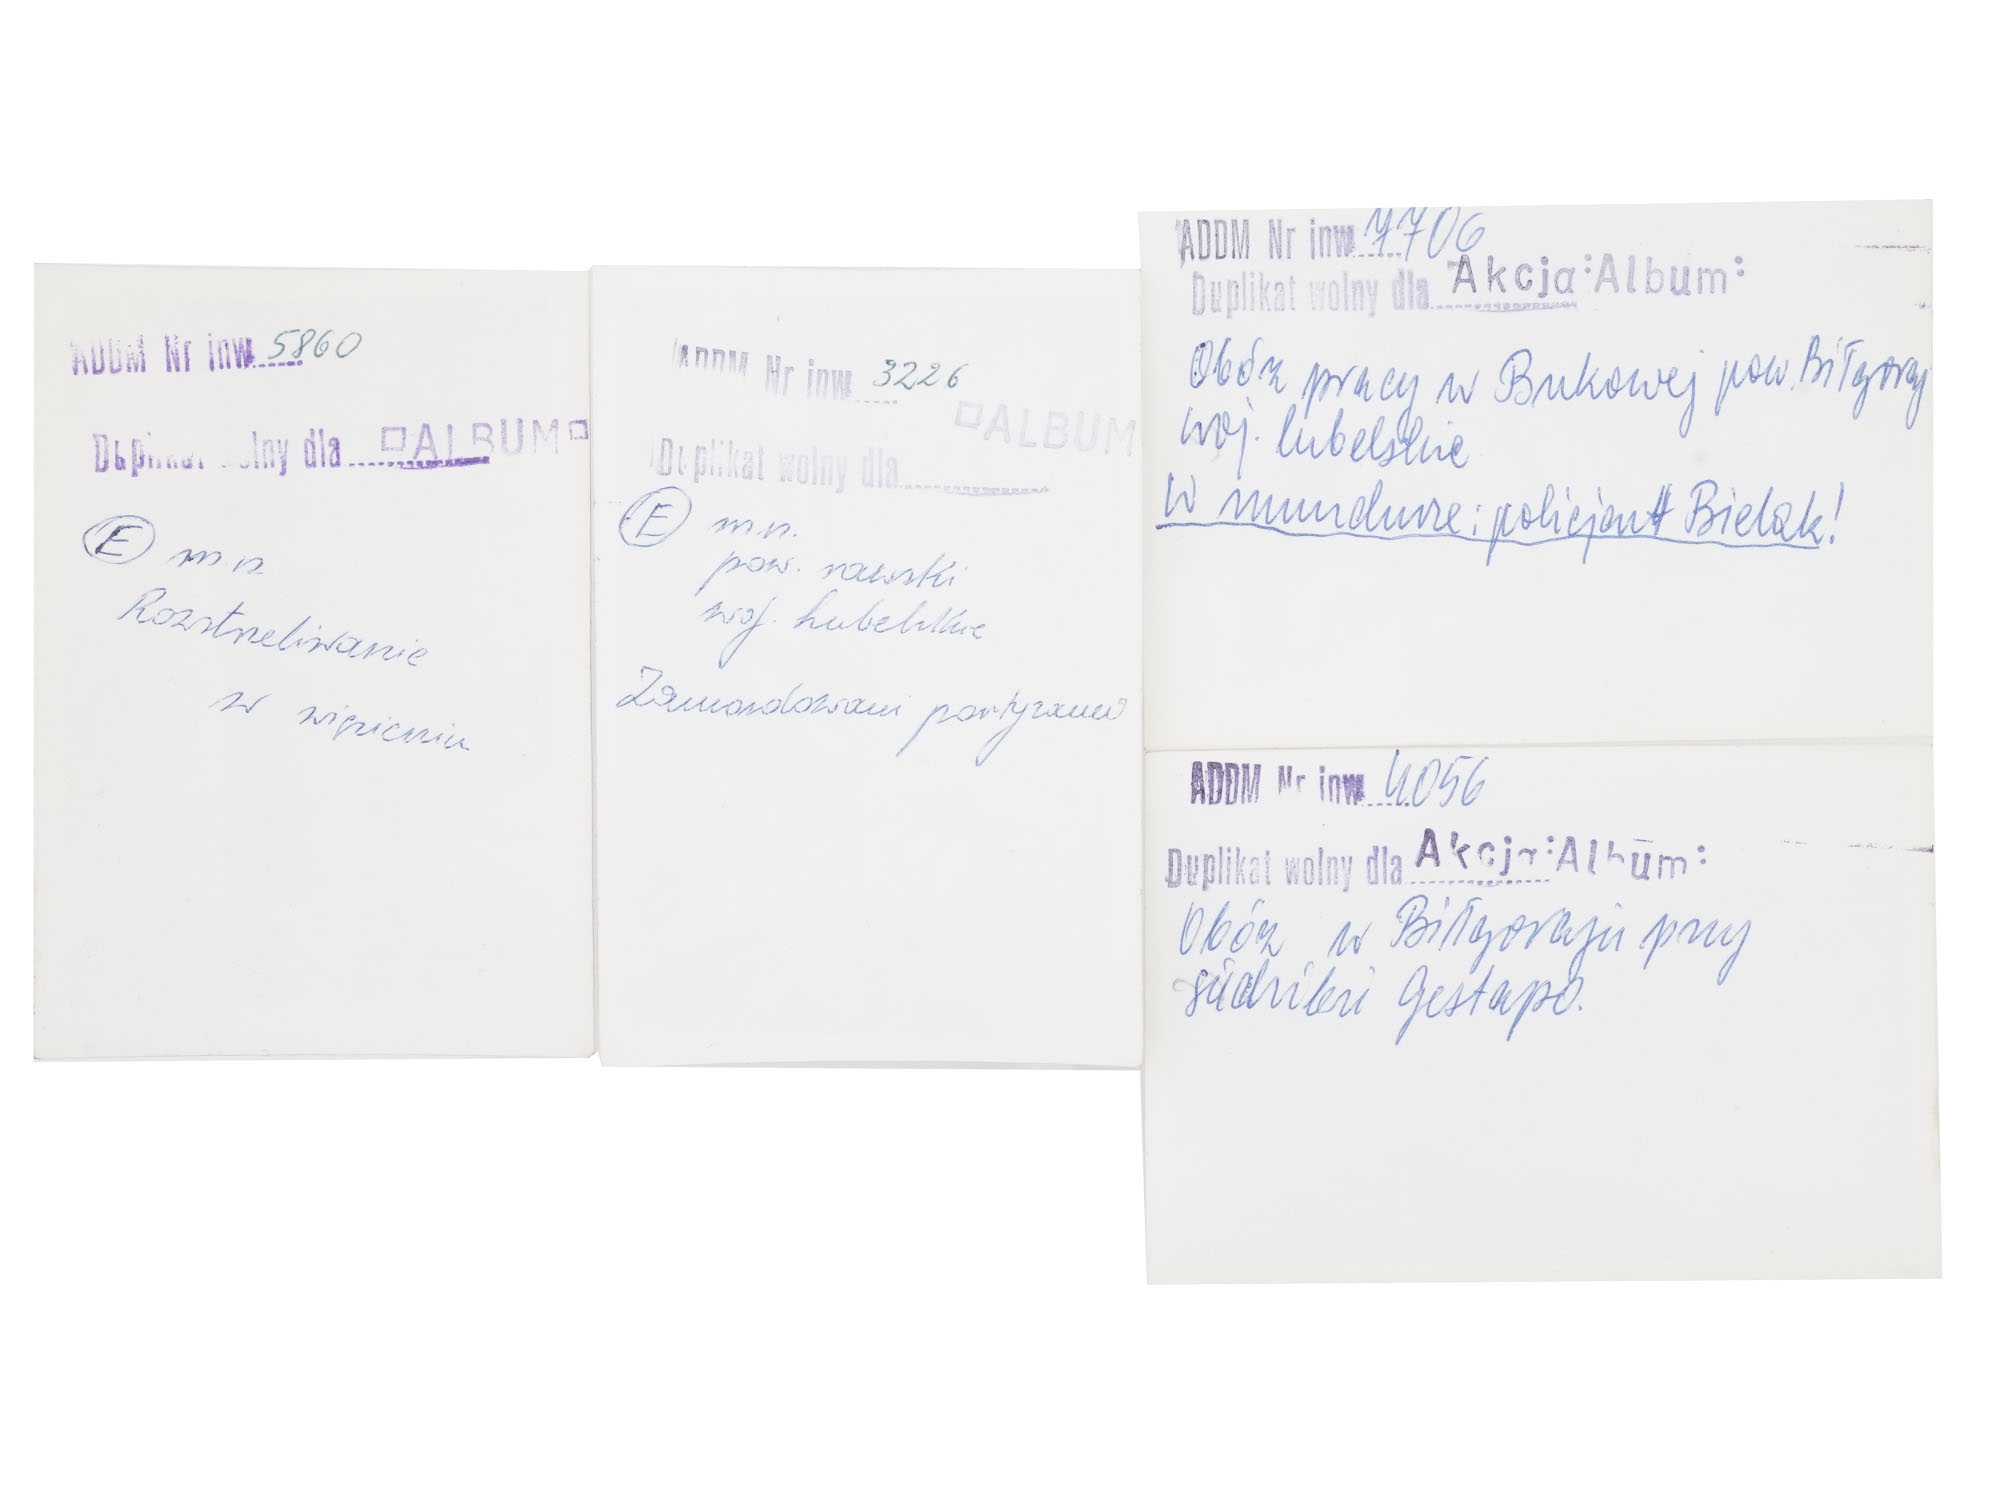 ADDM Nr inw. 5860
Duplikat wolny dla ALBUM
E m.n.
Rozstrzeliwanie
w więzieniu
ADDM Nr inw. 3226
ALBUM
Duplikat wolny dla
E m.n.
pow. rawski
woj. lubelskie
Zamordowani partyzanci
ADDM Nr inw. 7706
Duplikat wolny dla Akcja:Album:
Obóz pracy w Bukowej pow. Biłgoraj
woj. lubelskie
W mundurze: policjant Bielak!
ADDM Nr inw. 4056
Duplikat wolny dla Akcja:Album:
Obóz w Biłgoraju przy
siedzibie Gestapo.